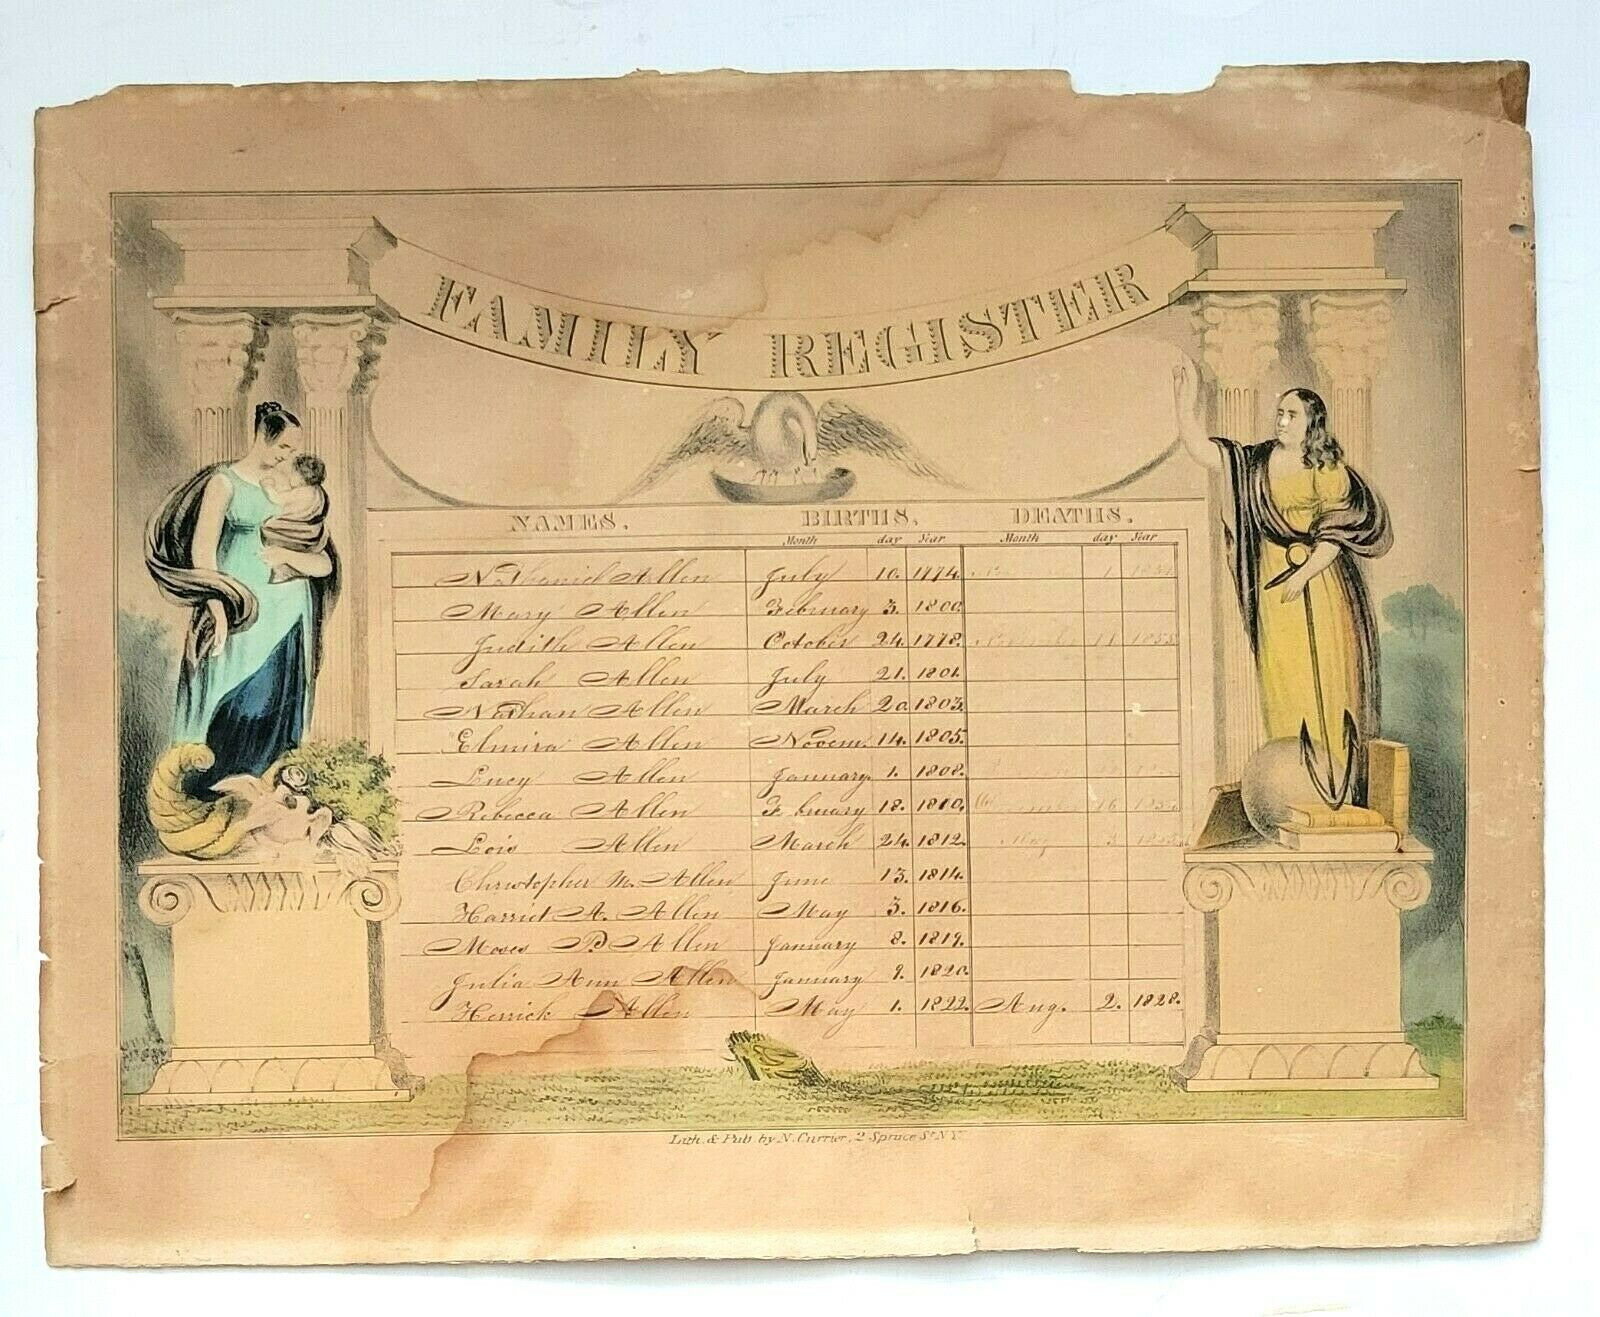 FAMILY REGISTER
NAMES. BIRTHS. DEATHS.
Month day Year Month day Year
Nathaniel Allen July 10. 1774. 1
Mary Allen February 3. 1800.
Judith Allen October 24. 1778. 11 1855.
Sarah Allen July 21. 1801.
Nathan Allen March 20. 1803.
Elmira Allen Novem. 14. 1805.
Lucy Allen January. 1. 1808.
Rebecca Allen February 18. 1810. 16
Lois Allen March 24. 1812. May 3.
Christopher M. Allen June 13. 1814.
Harriet A. Allen May 3. 1816.
Moses P. Allen January 8. 1819.
Julia Ann Allen January 9. 1820.
Herrick Allen May 1. 1822. Aug. 2. 1828.
Lith. & Pub. by N. Currier, 2 Spruce St. N.Y.